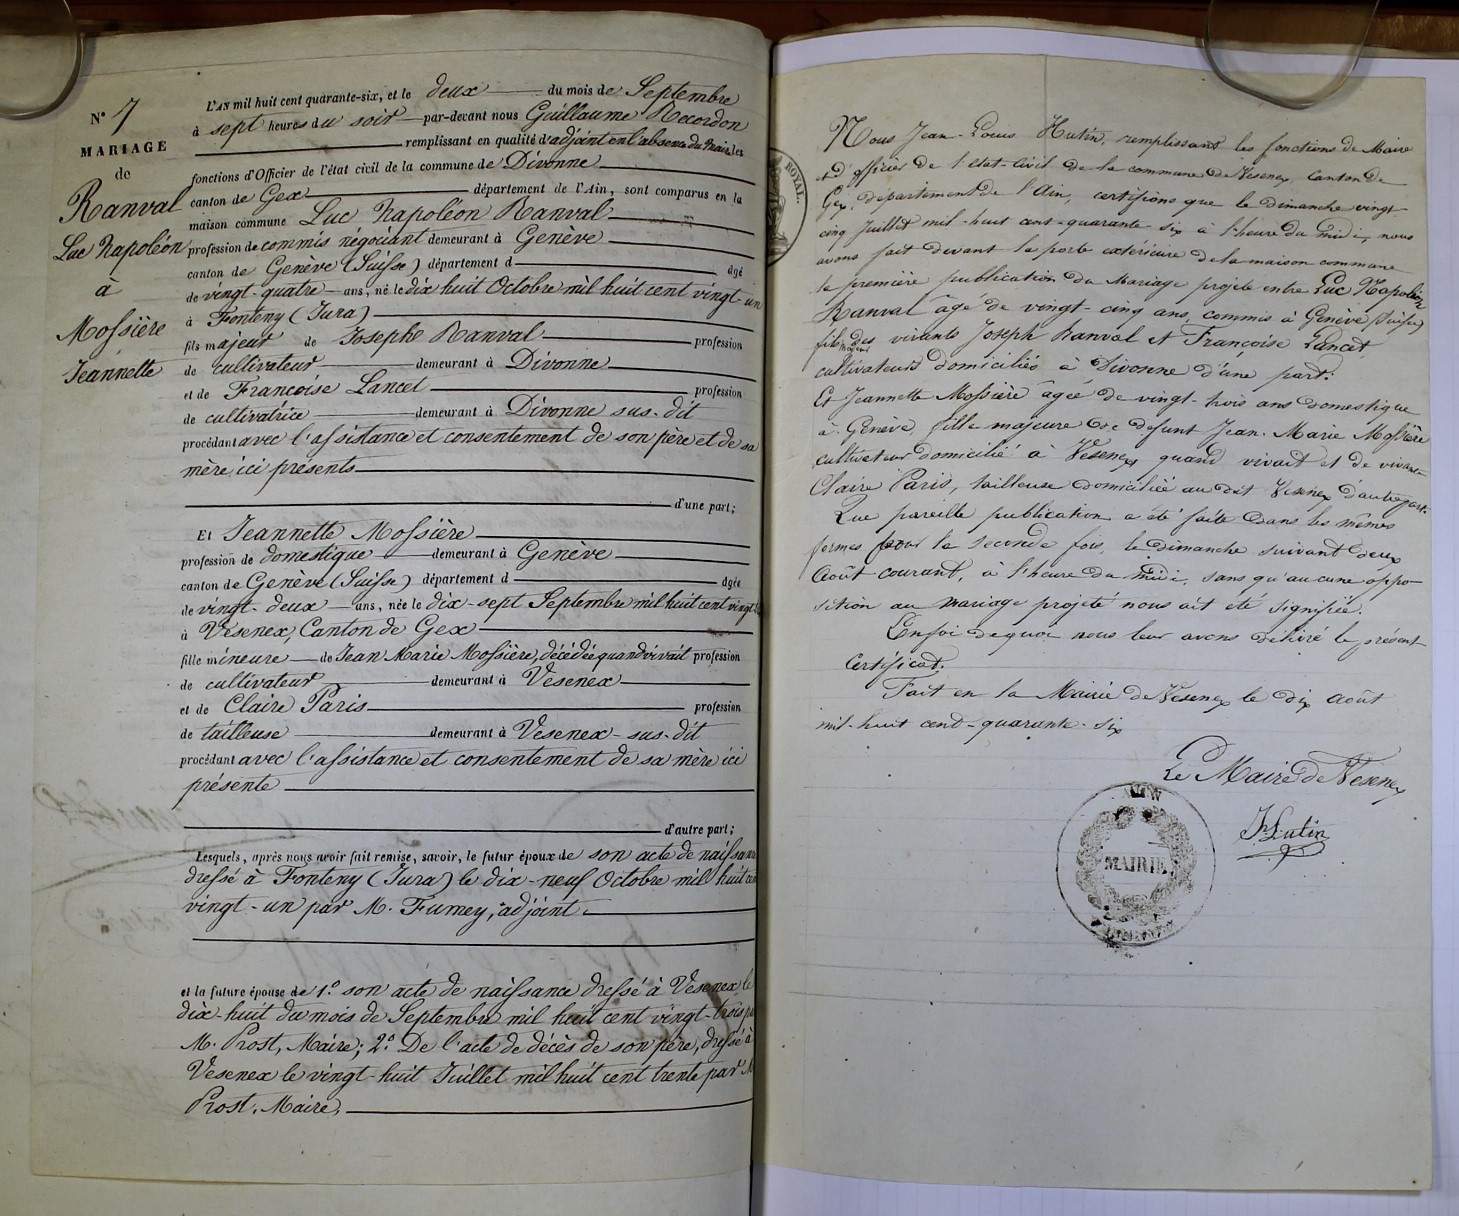 N° 7
MARIAGE
de
Ranval
Luc Napoléon
à
Mossière
Jeannette
L'AN mil huit cent quarante-six, et le deux du mois de Septembre
à sept heures du soir par-devant nous Guillaume Recordon
remplissant en qualité d'adjoint en l'absence du Maire les
fonctions d'Officier de l'état civil de la commune de Divonne
canton de Gex département de l'Ain, sont comparus en la
maison commune Luc Napoléon Ranval
profession de commis négociant demeurant à Genève
canton de Genève (Suisse) département d âgé
de vingt-quatre ans, né le dix huit Octobre mil huit cent vingt-un
à Fonteny (Jura)
fils majeur de Joseph Ranval profession
de cultivateur demeurant à Divonne
et de Françoise Lancet profession
de cultivatrice demeurant à Divonne sus-dit
procédant avec l'assistance et consentement de son père et de sa
mère ici présents
d'une part;
Et Jeannette Mossière
profession de domestique demeurant à Genève
canton de Genève (Suisse) département d âgée
de vingt-deux ans, née le dix-sept Septembre mil huit cent vingt
à Vesenex, Canton de Gex
fille mineure de Jean Marie Mossière, décédée quand vivait profession
de cultivateur demeurant à Vesenex
et de Claire Paris profession
de tailleuse demeurant à Vesenex-sus-dit
procédant avec l'assistance et consentement de sa mère ici
présente
d'autre part;
Lesquels, après nous avoir fait remise, savoir, le futur époux de son acte de naissance
dressé à Fonteny (Jura) le dix-neuf Octobre mil huit cent
vingt-un par M. Fumey, adjoint.
et la future épouse de 1.° son acte de naissance dressé à Vesenex le
dix-huit du mois de Septembre mil huit cent vingt-trois par
M. Prost, Maire; 2.° De l'acte de décès de son père, dressé à
Vesenex le vingt-huit Juillet mil huit cent trente par M
Prost, Maire,
ROYAL.
Nous Jean-Louis Hutin, remplissant les fonctions de Maire
et d'officier de l'état civil de la commune de Vesenex, Canton de
Gex, département de l'Ain, certifions que le dimanche vingt
cinq Juillet mil-huit cent-quarante-six à l'heure du midi, nous
avons fait devant la porte extérieure de la maison commune
la première publication du Mariage projeté entre Luc Napoléon
Ranval âgé de vingt-cinq ans, commis à Genève (Suisse)
fils majeur des vivants Joseph Ranval et Françoise Lancet
cultivateurs domiciliés à Divonne d'une part.
Et Jeannette Mossière âgée de vingt-trois ans domestique
à Genève fille majeure de défunt Jean-Marie Mossière
cultivateur domicilié à Vesenex quand vivait et de vivante
Claire Paris, tailleuse domiciliée au dit Vesenex d'autre part.
Que pareille publication a été faite dans les mêmes
formes pour la seconde fois, le dimanche suivant deux
Août courant, à l'heure du midi, sans qu'aucune oppo-
sition au mariage projeté nous ait été signifiée.
En foi de quoi nous leur avons délivré le présent
Certificat.
Fait en la Mairie de Vesenex le dix août
mil-huit cent-quarante-six
Le Maire de Vesenex
Hutin
AIN
MAIRIE